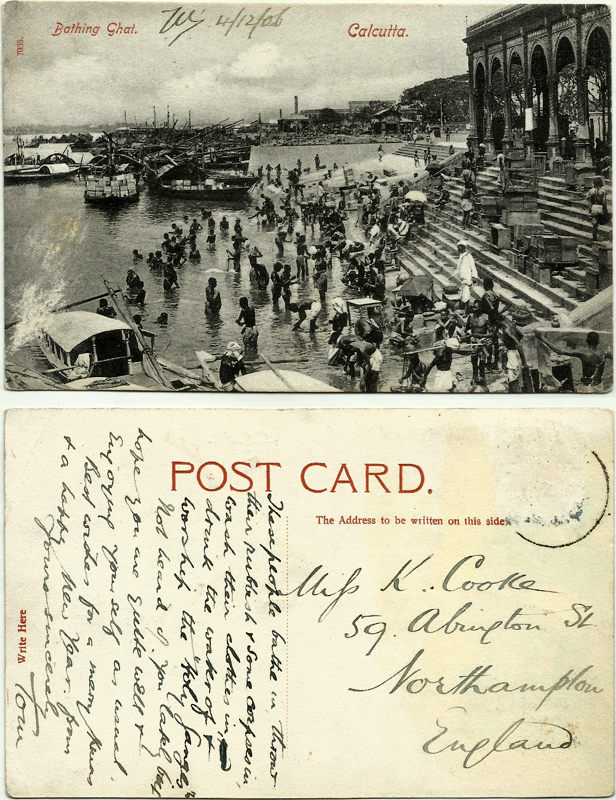 7005.
Bathing Ghat.
4/12/06
Calcutta.
POST CARD.
The Address to be written on this side.
Write Here
These people bathe in, throw
their rubbish & some corpses in,
wash their clothes in,
drink the water of &
worship the "Holy Ganges"
Not heard of you lately but
hope you are quite well &
Enjoying yourself as usual.
Best wishes for a merry Xmas
& a happy New Year. from
Yours sincerely
Tom
Miss K. Cooke
59. Abington St
Northampton
England